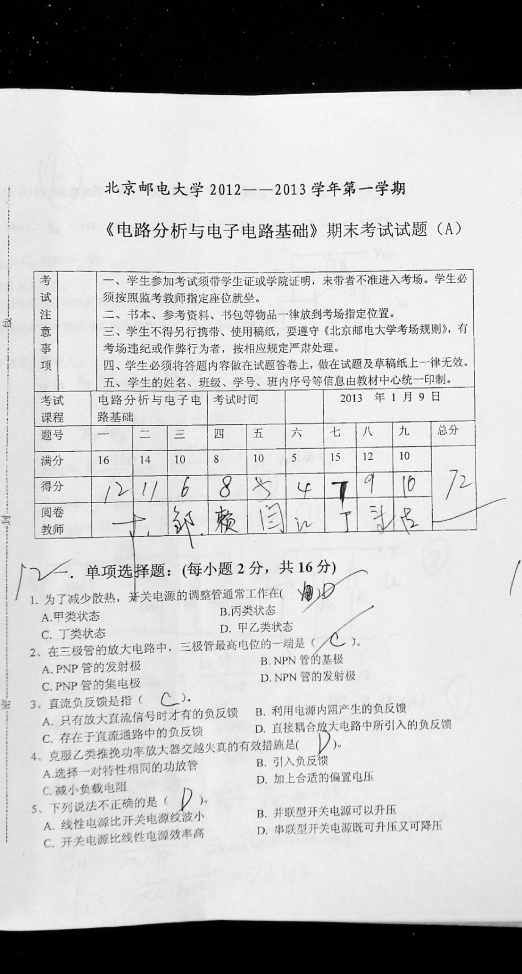 北京邮电大学 2012——2013 学年第一学期
《电路分析与电子电路基础》期末考试试题（A）
考试注意事项
一、学生参加考试须带学生证或学院证明，未带者不准进入考场。学生必
须按照监考教师指定座位就坐。
二、书本、参考资料、书包等物品一律放到考场指定位置。
三、学生不得另行携带、使用稿纸，要遵守《北京邮电大学考场规则》，有
考场违纪或作弊行为者，按相应规定严肃处理。
四、学生必须将答题内容做在试题答卷上，做在试题及草稿纸上一律无效。
五、学生的姓名、班级、学号、班内序号等信息由教材中心统一印制。
考试课程 电路分析与电子电路基础 考试时间 2013 年 1 月 9 日
题号 一 二 三 四 五 六 七 八 九 总分
满分 16 14 10 8 10 5 15 12 10
得分 12 11 6 8 4 7 9 10 72
阅卷教师 邹 赖 闫
12
一. 单项选择题：(每小题 2 分，共 16 分)
1. 为了减少散热，开关电源的调整管通常工作在( D
A.甲类状态 B.丙类状态
C. 丁类状态 D. 甲乙类状态
2、在三极管的放大电路中，三极管最高电位的一端是（ C ）。
A. PNP 管的发射极 B. NPN 管的基极
C. PNP 管的集电极 D. NPN 管的发射极
3、直流负反馈是指（ C ）.
A. 只有放大直流信号时才有的负反馈 B. 利用电源内阻产生的负反馈
C. 存在于直流通路中的负反馈 D. 直接耦合放大电路中所引入的负反馈
4、克服乙类推挽功率放大器交越失真的有效措施是( D )。
A.选择一对特性相同的功放管 B. 引入负反馈
C. 减小负载电阻 D. 加上合适的偏置电压
5、下列说法不正确的是（ D ）。
A. 线性电源比开关电源纹波小 B. 并联型开关电源可以升压
C. 开关电源比线性电源效率高 D. 串联型开关电源既可升压又可降压